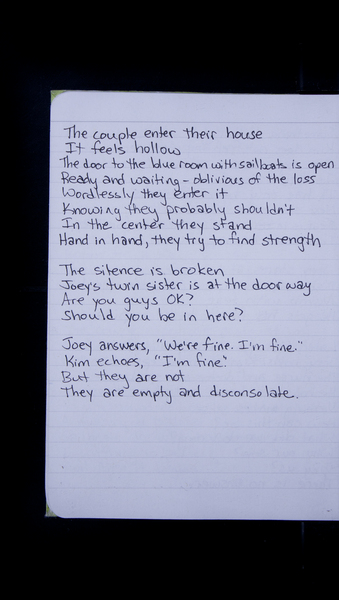 The couple enter their house
It feels hollow
The door to the blue room with sailboats is open
Ready and waiting - oblivious of the loss
Wordlessly they enter it
Knowing they probably shouldn't
In the center they stand
Hand in hand, they try to find strength
The silence is broken
Joey's twin sister is at the doorway
Are you guys OK?
Should you be in here?
Joey answers, "We're fine. I'm fine."
Kim echoes, "I'm fine."
But they are not
They are empty and disconsolate.